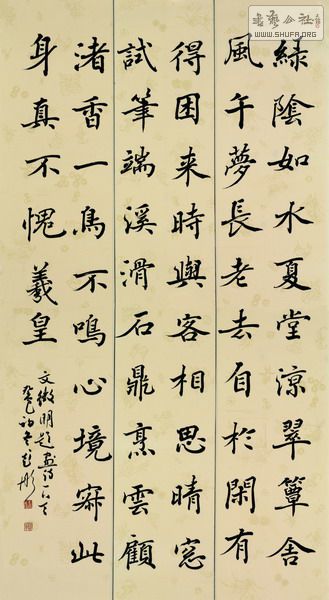 書藝公社
WWW.SHUFA.ORG
綠陰如水夏堂涼翠簟舍
風午夢長老去自於閑有
得困来時與客相思晴窓
試筆端溪滑石鼎烹雲顧
渚香一鳥不鳴心境寂此
身真不愧羲皇
文徵明題畫詩一首